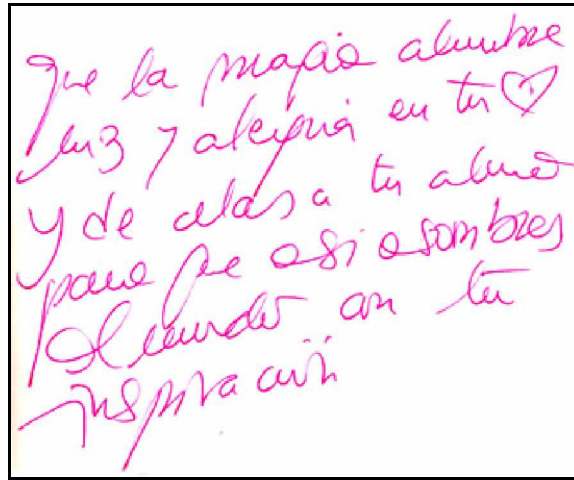 Que la magia alumbre
luz y alegria en tu ♡
y de alas a tu alma
para que asi asombres
al mundo con tu
inspiración